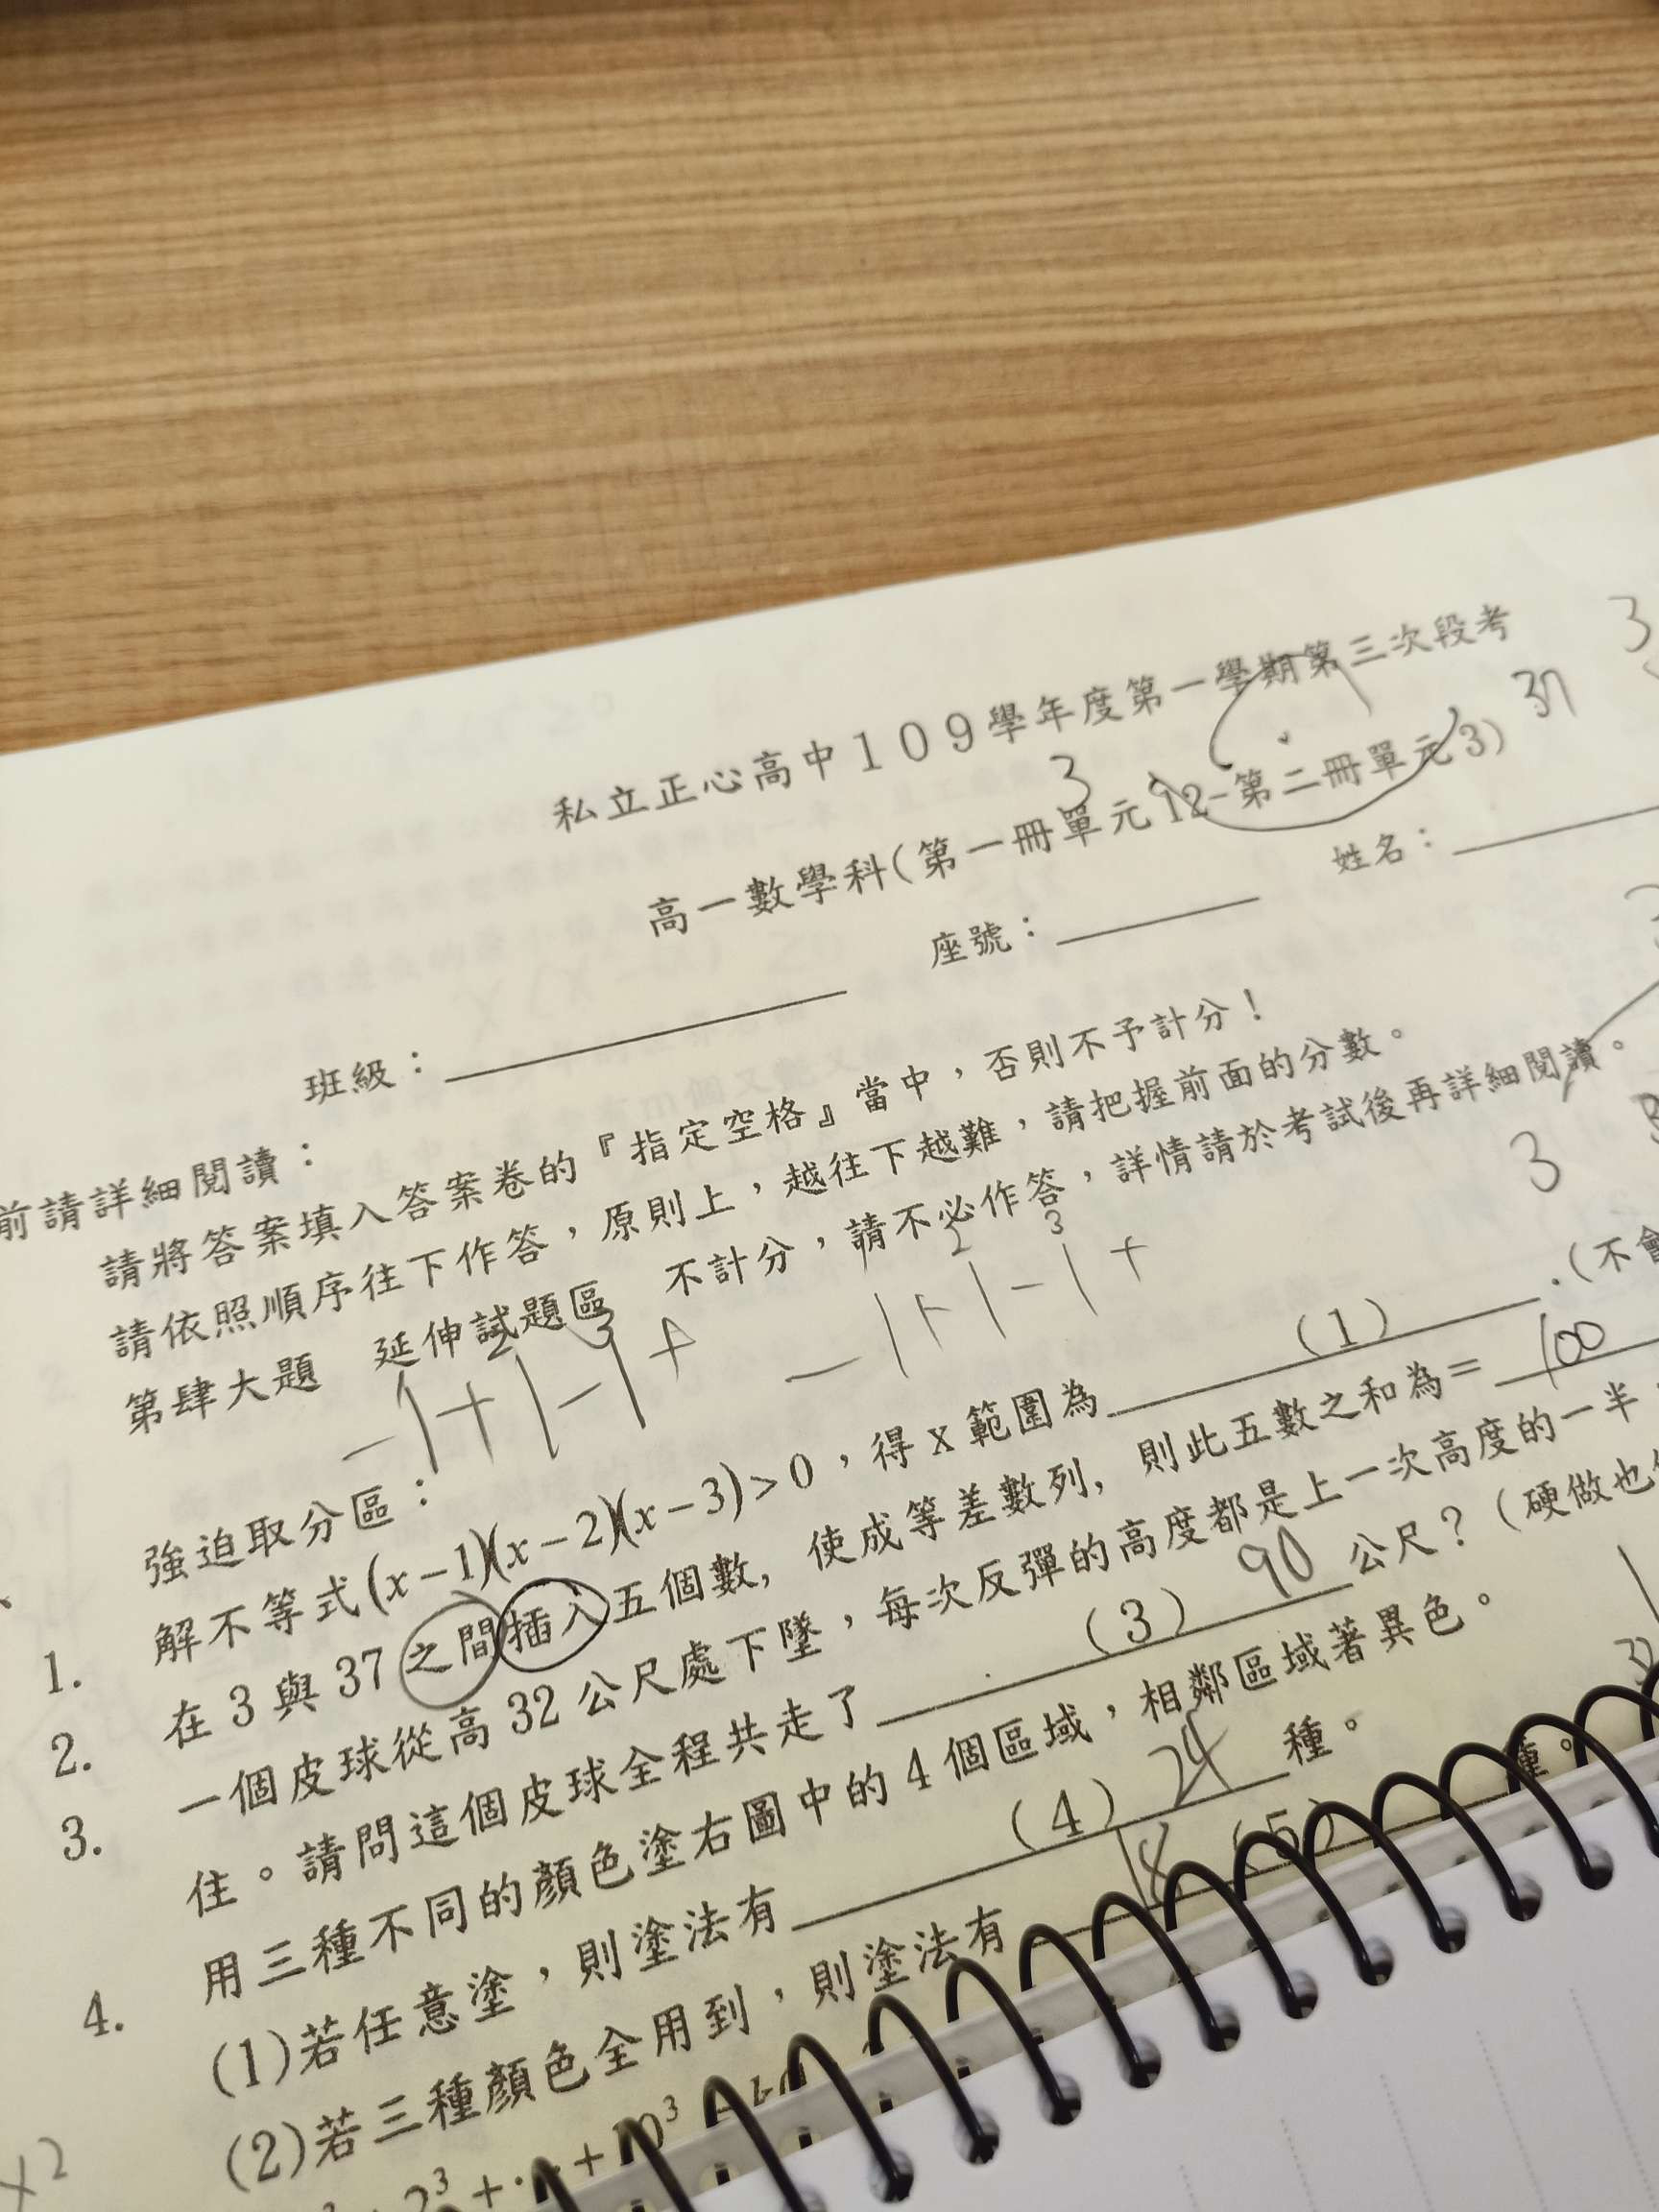 3
私立正心高中109學年度第一學期第三次段考
3
37
高一數學科(第一冊單元12-第二冊單元3)
班級：
座號：
姓名：
前請詳細閱讀：
請將答案填入答案卷的『指定空格』當中，否則不予計分！
請依照順序往下作答，原則上，越往下越難，請把握前面的分數。
第肆大題 延伸試題區 不計分，請不必作答，詳情請於考試後再詳細閱讀。
3
2 3
- 1 + | - | +
2 3
- | + | - | +
強迫取分區：
1. 解不等式(x-1)(x-2)(x-3)>0，得 x 範圍為 (1) .(不會
2. 在 3 與 37 之間插入五個數, 使成等差數列, 則此五數之和為= 100
3. 一個皮球從高 32 公尺處下墜，每次反彈的高度都是上一次高度的一半
住。請問這個皮球全程共走了 (3) 90 公尺？（硬做也
4. 用三種不同的顏色塗右圖中的 4 個區域，相鄰區域著異色。
(1)若任意塗，則塗法有 (4) 24 種。
(2)若三種顏色全用到，則塗法有 18 (5) 種。
2³+⋯+10³